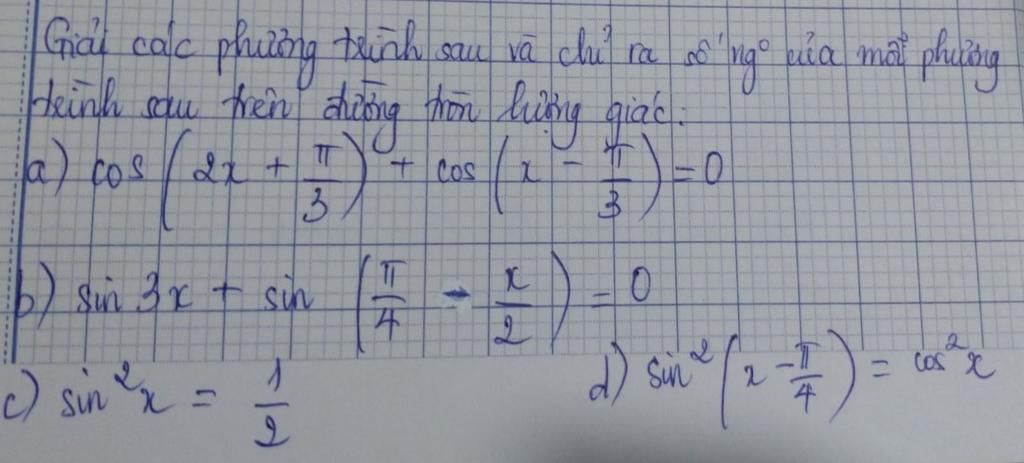 Giải các phương trình sau và chỉ ra số ngº của mỗi phương
trình sau trên đường tròn lượng giác:
a) cos (2x + π/3) + cos (x - π/3) = 0
b) sin 3x + sin (π/4 - x/2) = 0
c) sin²x = 1/2
d) sin²(x - π/4) = cos²x